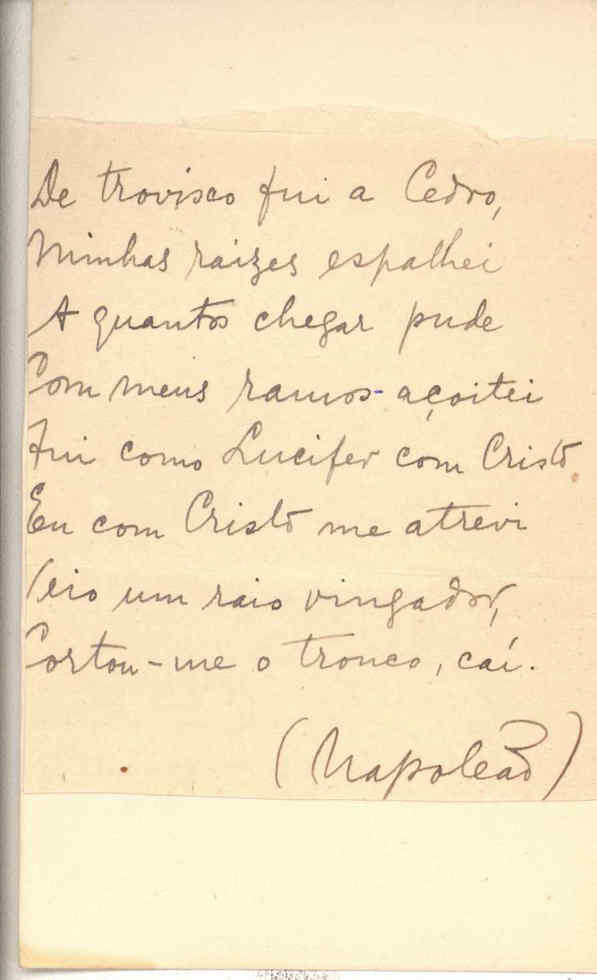 De trovisco fui a Cedro,
Minhas raizes espalhei
A quantos chegar pude
Com meus ramos - açoitei
Fui como Lucifer com Cristo
Eu com Cristo me atrevi
Veio um raio vingador,
Cortou-me o tronco, caí.
(Napoleão)